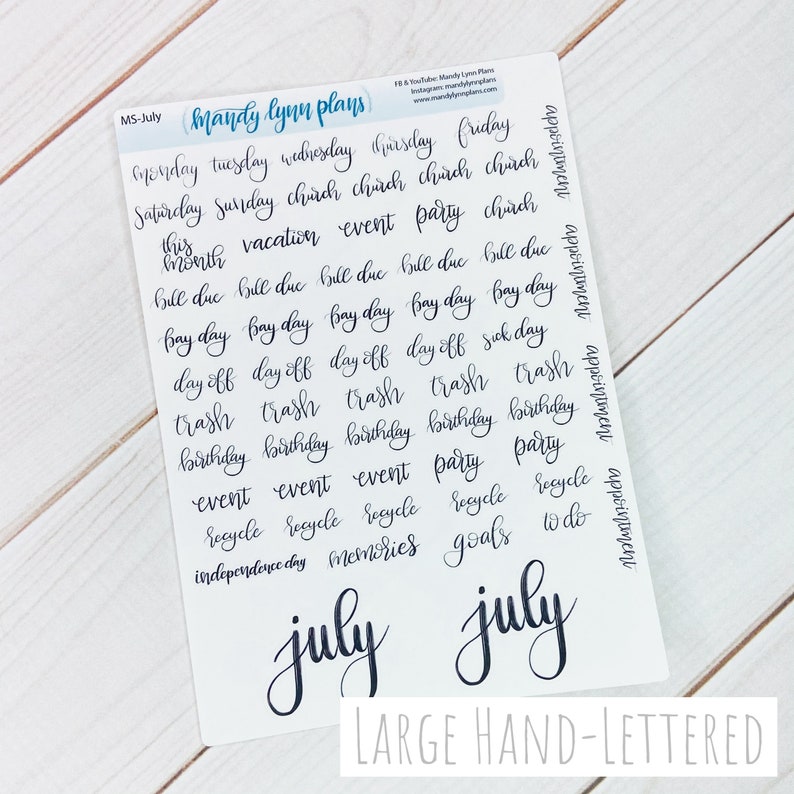 MS-July
mandy lynn plans
FB & YouTube: Mandy Lynn Plans
Instagram: mandylynnplans
www.mandylynnplans.com
monday tuesday wednesday thursday friday
saturday sunday church church church church
this month vacation event party church
bill due bill due bill due bill due bill due
pay day pay day pay day pay day pay day
day off day off day off day off sick day
trash trash trash trash trash
birthday birthday birthday birthday birthday
event event event party party
recycle recycle recycle recycle recycle
independence day memories goals to do
july july
appointment
appointment
appointment
appointment
LARGE HAND-LETTERED